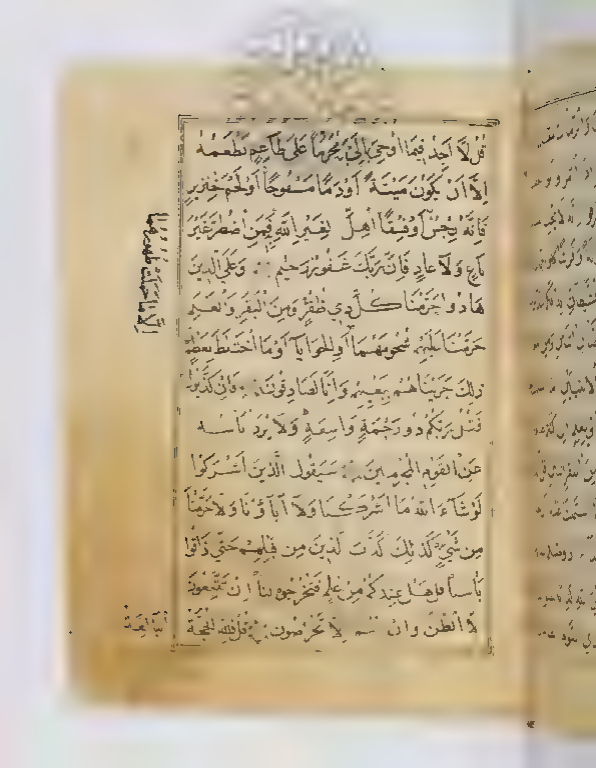 قُل لَّا أَجِدُ فِيمَا أُوحِيَ إِلَيَّ مُحَرَّمًا عَلَى طَاعِمٍ يَطْعَمُهُ
إِلَّا أَن يَكُونَ مَيْتَةً أَوْ دَمًا مَسْفُوحًا أَوْ لَحْمَ خِنزِيرٍ
فَإِنَّهُ رِجْسٌ أَوْ فِسْقًا أُهِلَّ لِغَيْرِ اللَّهِ فَمَنِ اضْطُرَّ غَيْرَ
بَاغٍ وَلَا عَادٍ فَإِنَّ رَبَّكَ غَفُورٌ رَحِيمٌ وَعَلَى الَّذِينَ
هَادُوا حَرَّمْنَا كُلَّ ذِي ظُفُرٍ وَمِنَ الْبَقَرِ وَالْغَنَمِ
حَرَّمْنَا عَلَيْهِمْ شُحُومَهُمَا أَوِ الْحَوَايَا أَوْ مَا اخْتَلَطَ بِعَظْمٍ
ذَلِكَ جَزَيْنَاهُمْ بِبَغْيِهِمْ وَإِنَّا لَصَادِقُونَ فَإِن كَذَّبُوكَ
فَقُلْ رَبُّكُمْ ذُو رَحْمَةٍ وَاسِعَةٍ وَلَا يُرَدُّ بَأْسُهُ
عَنِ الْقَوْمِ الْمُجْرِمِينَ سَيَقُولُ الَّذِينَ أَشْرَكُوا
لَوْ شَاءَ اللَّهُ مَا أَشْرَكْنَا وَلَا آبَاؤُنَا وَلَا حَرَّمْنَا
مِن شَيْءٍ كَذَلِكَ كَذَّبَ الَّذِينَ مِن قَبْلِهِمْ حَتَّى ذَاقُوا
بَأْسَنَا قُلْ هَلْ عِندَكُمْ مِنْ عِلْمٍ فَتُخْرِجُوهُ لَنَا إِن تَتَّبِعُونَ
إِلَّا الظَّنَّ وَإِنْ أَنتُمْ إِلَّا تَخْرُصُونَ قُلْ فَلِلَّهِ الْحُجَّةُ
الْبَالِغَةُ
إِلَّا مَا حَمَلَتْ ظُهُورُهُمَا